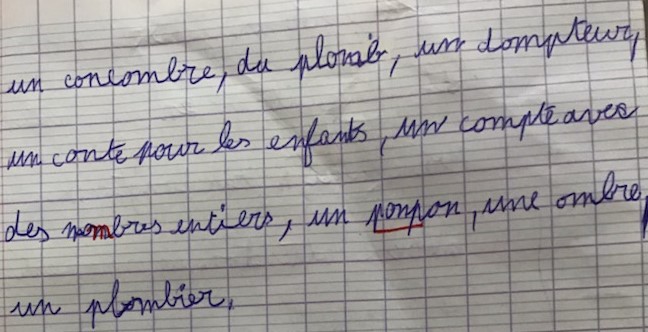 un concombre, du plomb, un dompteur,
un conte pour les enfants, un compte avec
des nombres entiers, un ponpon, une ombre,
un plombier.